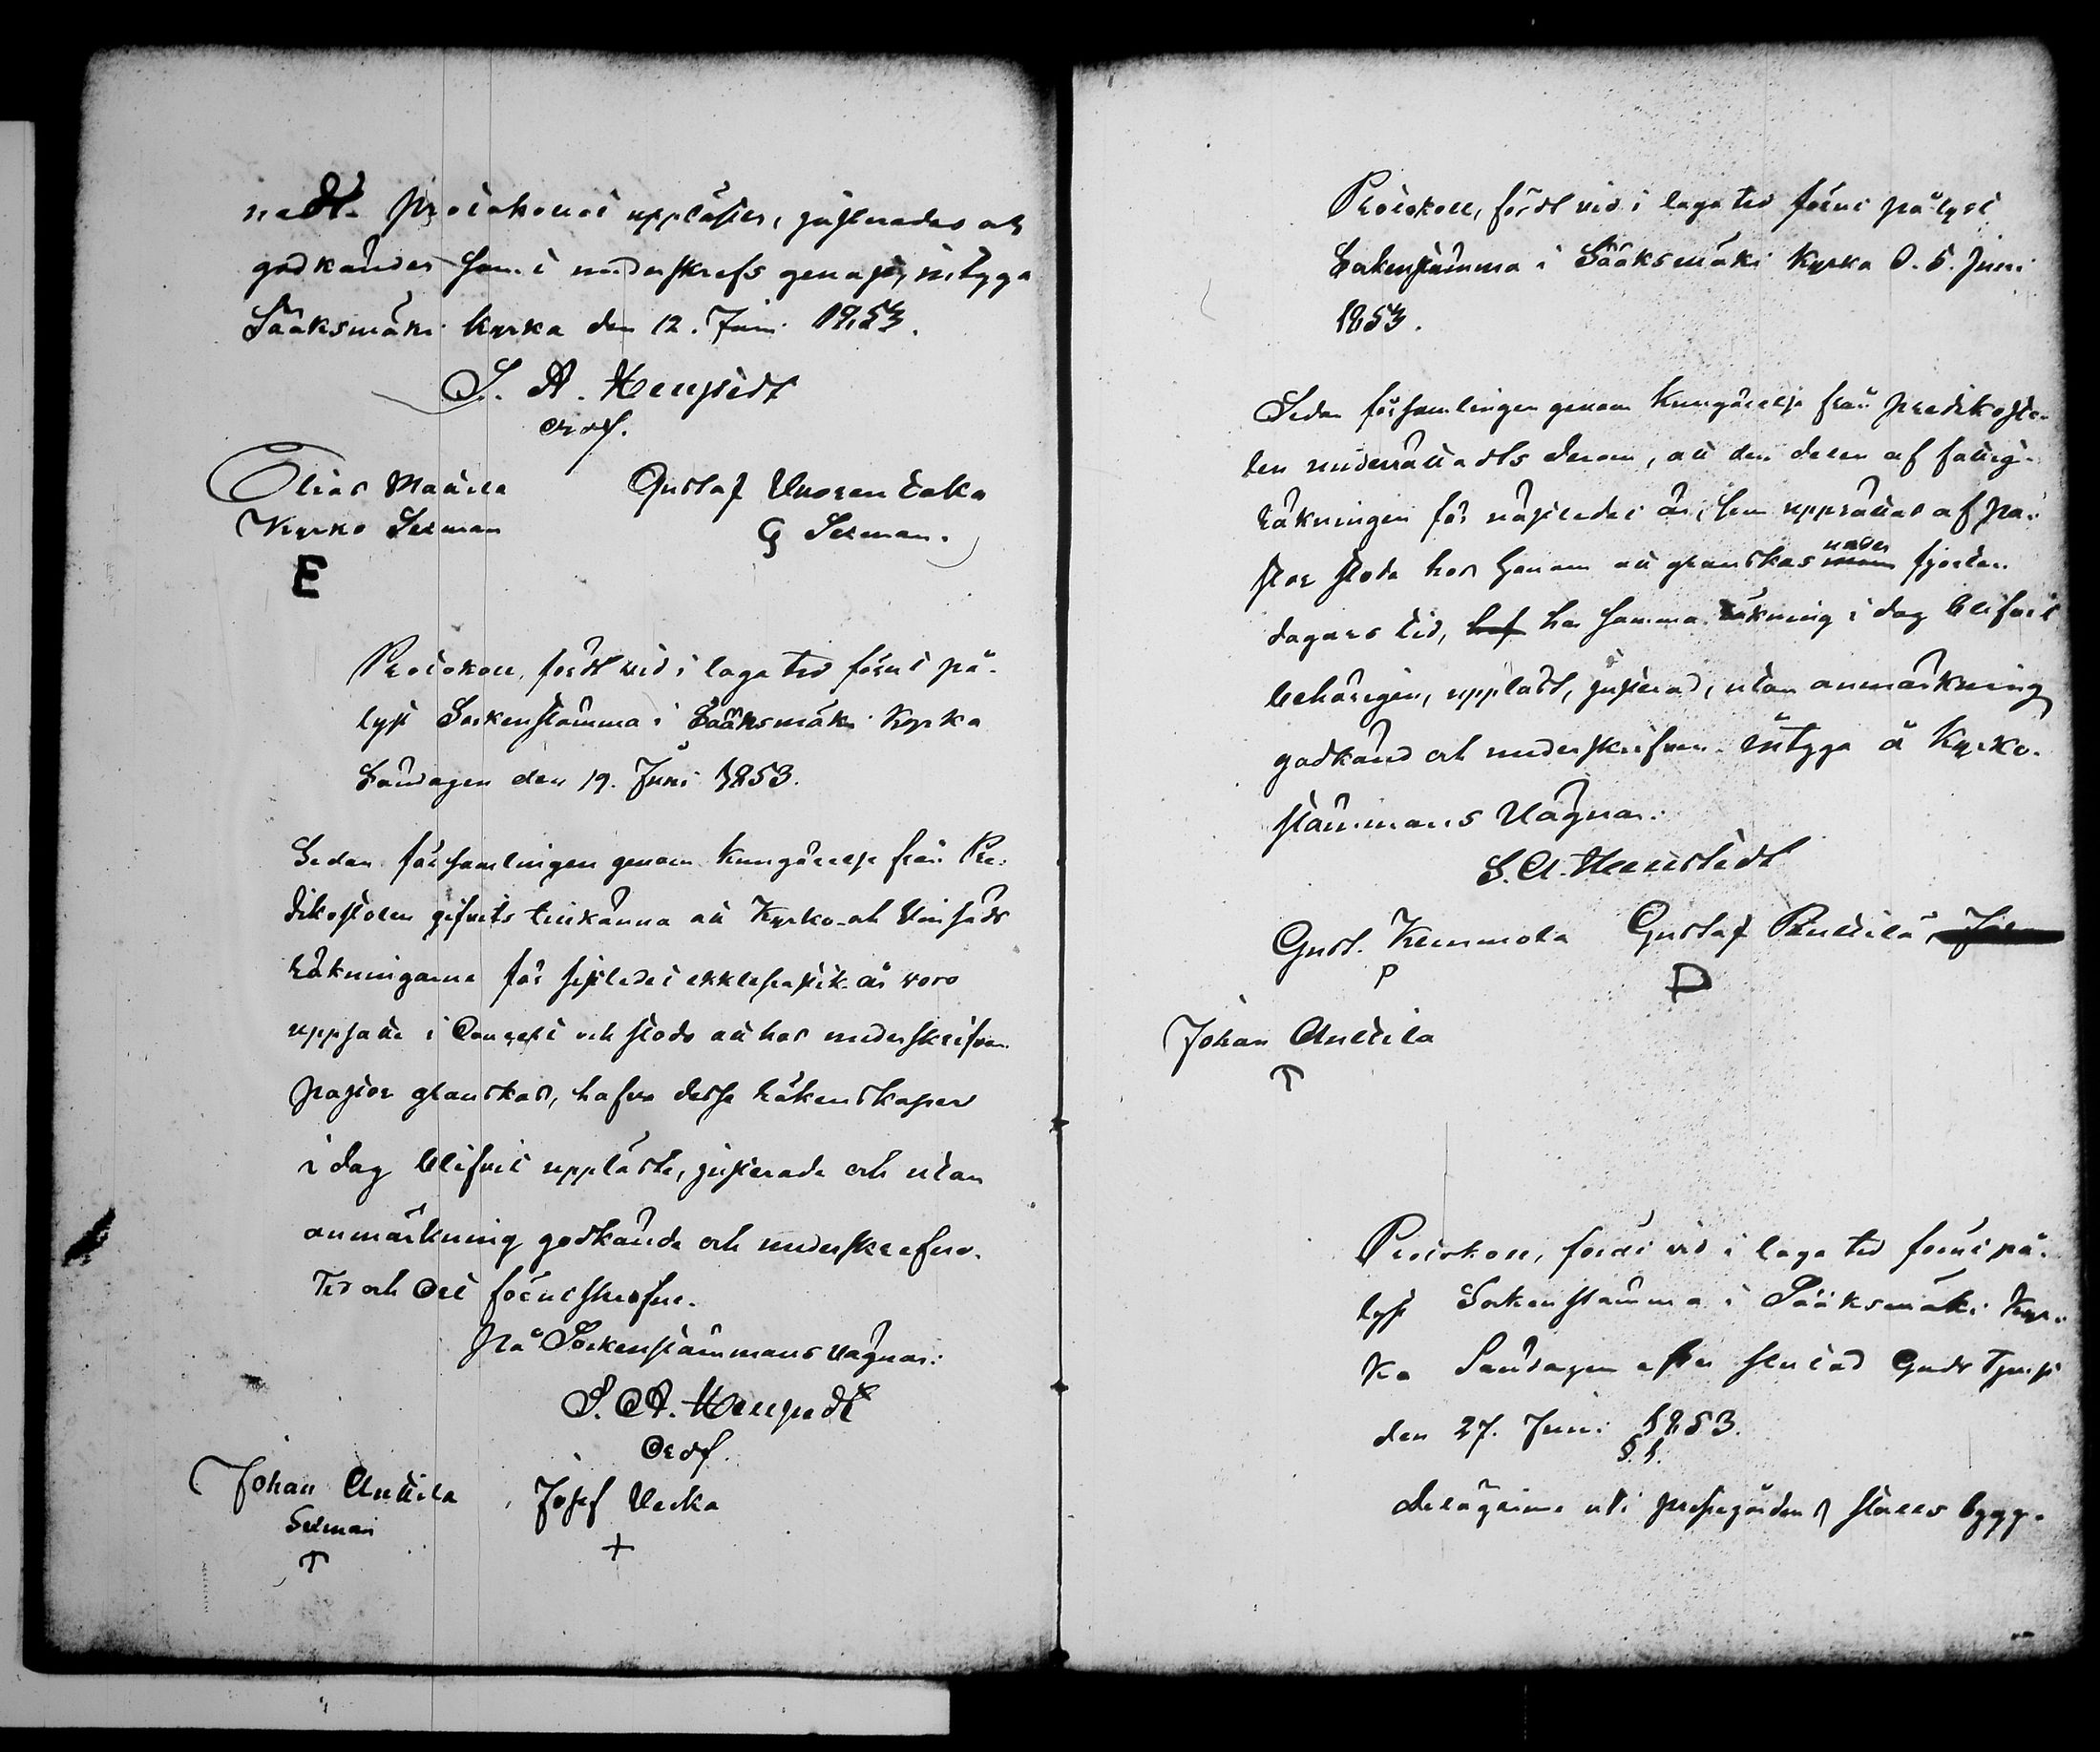 nedt. Protokollet uppläst, justerades och
godkändes samt underskrefs genast, intyga
Sääksmäki kyrka den 12. Juni 1853.
S. A. Hellstedt
Ordf.
Elias Mattila Gustaf Uuorentaka
Kyrko Sexman Sexman.
E G
Protokoll, fördt vid i laga tid förut på-
lyst Sockenstämma i Sääksmäki Kyrka
Söndagen den 19. Juni 1853.
Sedan församlingen genom kungörelse från Pre-
dikostolen gifvits tillkänna att Kyrko- och Uinsäds
räkningarne för sistledet ekklesiastik år voro
uppsatte i Concept och stodo att hos underskrifven
pastor granskas, hafva dessa räkenskaper
i dag blifvit uppläste, justerade och utan
anmärkning godkände och underskrefne.
Tid och Ort förutskrefne.
På Sockenstämmans vägnar:
S. A. Hellstedt
Ordf.
Johan Anttila Josef Uecka
Sexman +
T
Protokoll, fördt vid i laga tid förut pålyst
Sockenstämma i Sääksmäki Kyrka d. 5. Juni
1853.
Sedan församlingen genom kungörelse från predikosto-
len underrättadts derom, att den delen af fattig-
räkningen för nästledet år, som upprättas af pa-
stor stode hos honom att granskas under fjorton
dagars tid, haf har samma räkning i dag blifvit
behörigen, uppläst, justerad, utan anmärkning
godkänd och underskrifven. Intyga å Kyrko-
stämmans vägnar:
S. A. Hellstedt
Gust. Kemmola Gustaf Penttilä, Johan
P D
Johan Anttila
T
Protokoll, fördt vid i laga tid förut på-
lyst Sockenstämma i Sääksmäki Kyr-
ka Söndagen efter slutad Guds Tjenst
den 27. Juni 1853.
§. 1.
Delägarne uti prestegårdens stalls bygg-